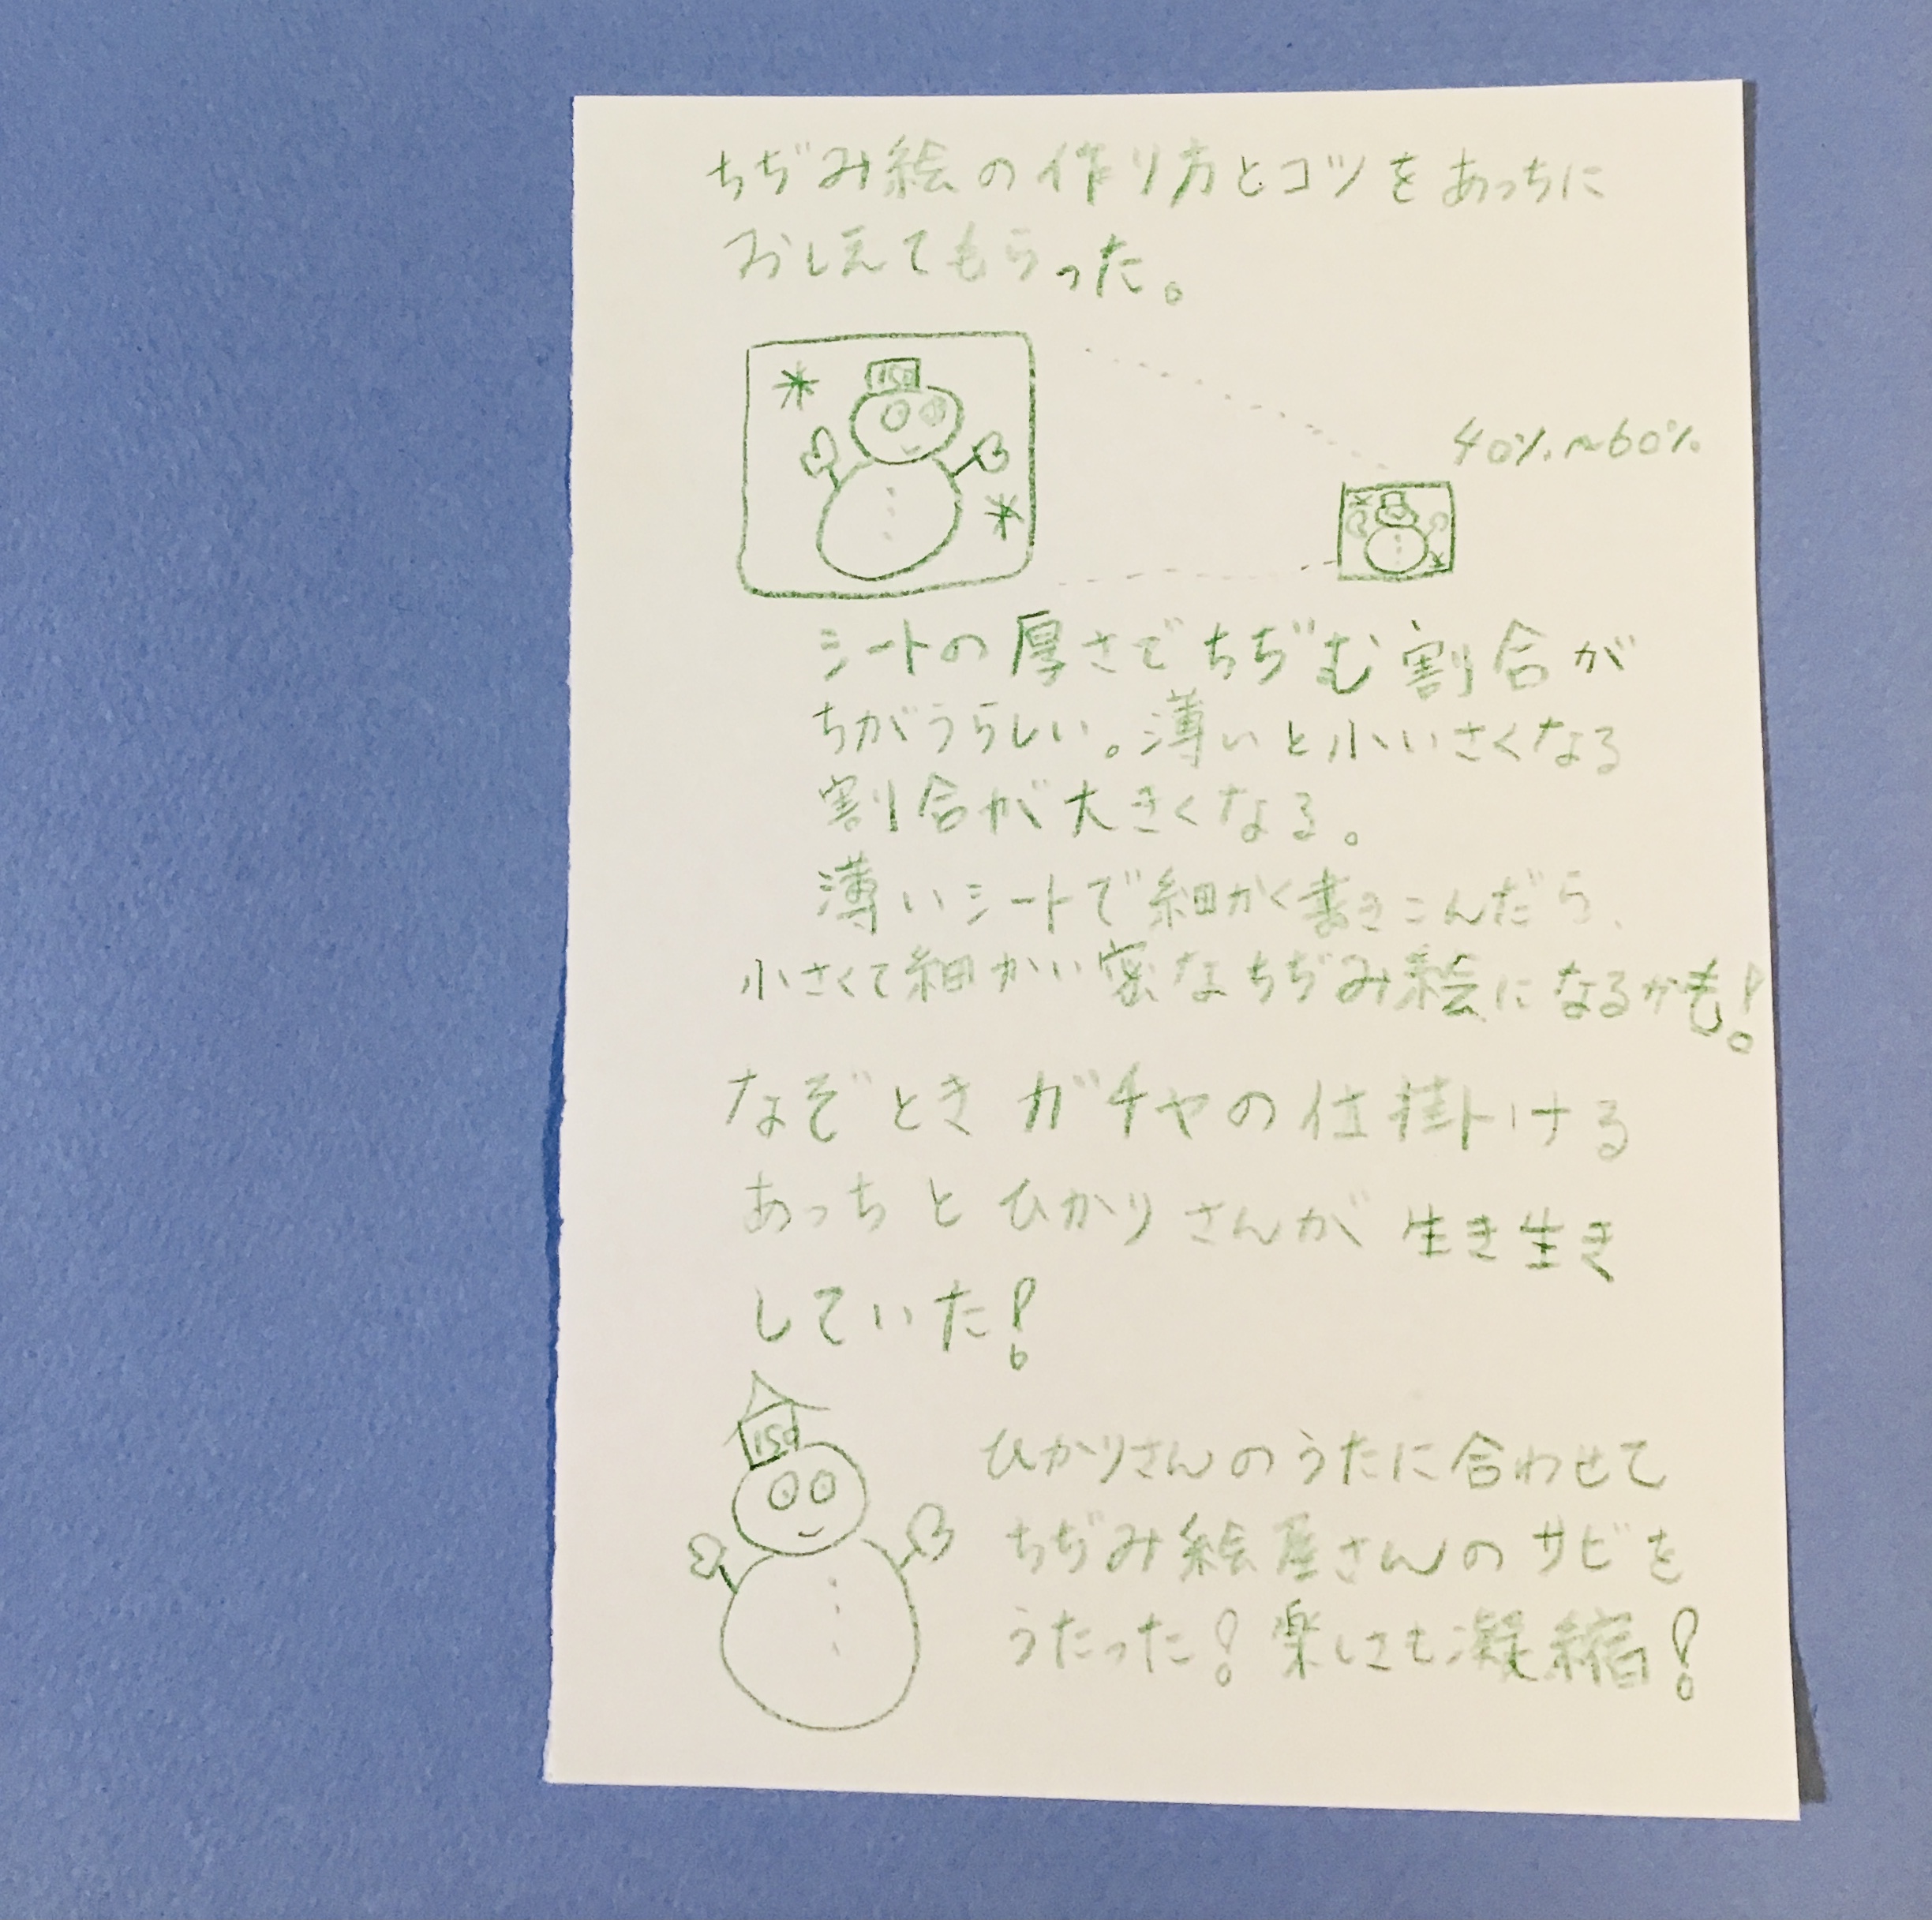 ちぢみ絵の作り方とコツをあっちに
おしえてもらった。
40%〜60%
シートの厚さでちぢむ割合が
ちがうらしい。薄いと小いさくなる
割合が大きくなる。
薄いシートで細かく書きこんだら、
小さくて細かい密なちぢみ絵になるかも!
なぞときガチャの仕掛ける
あっちとひかりさんが生き生き
していた!
ひかりさんのうたに合わせて
ちぢみ絵屋さんのサビを
うたった!楽しさも凝縮!